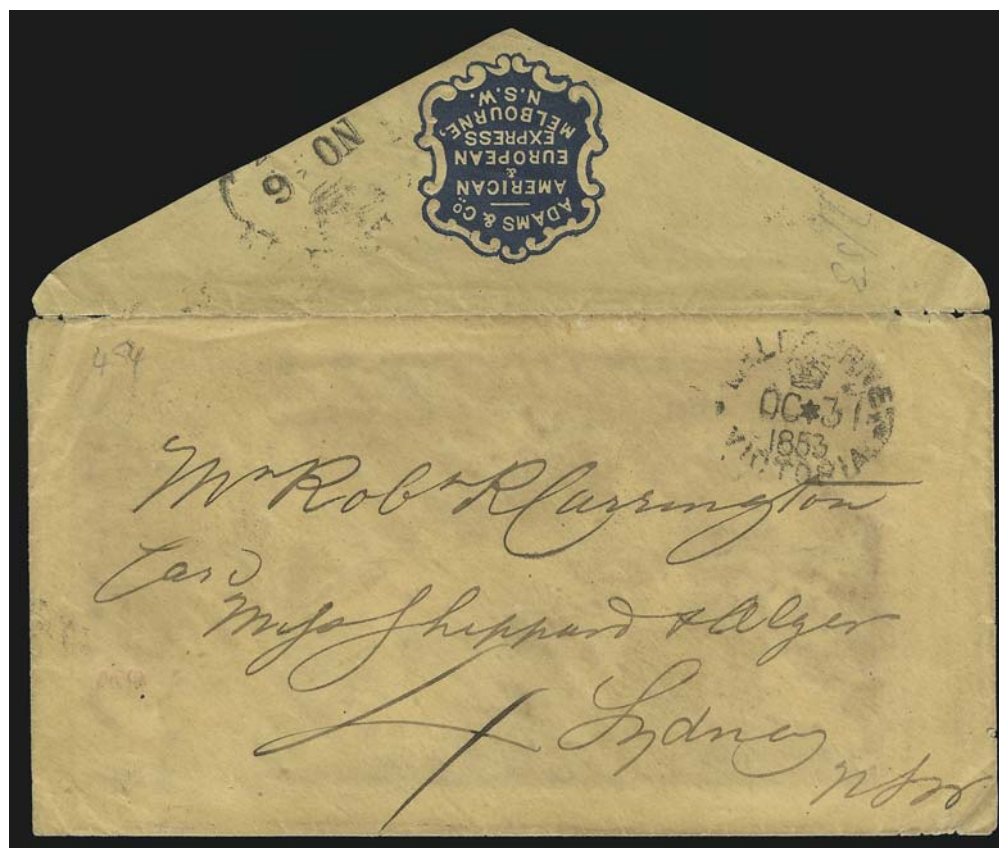 ADAMS & CO.
AMERICAN
&
EUROPEAN
EXPRESS
MELBOURNE,
N.S.W.
NO 6
2/53
484
MELBOURNE
OC★31
1853
VICTORIA
Mr Robt R Carrington
Care
Messrs Sheppard & Alger
4 Sydney
NSW